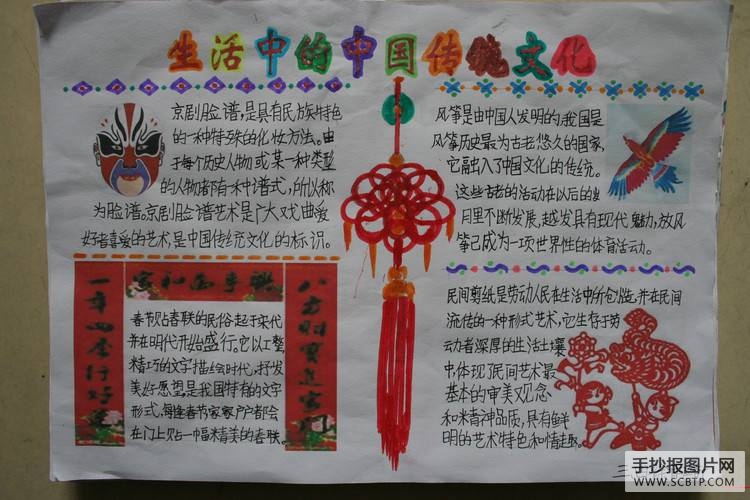 生活中的中国传统文化
京剧脸谱,是具有民族特色
的一种特殊的化妆方法。由
于每个历史人物或某一种类型
的人物都有一种谱式,所以称
为脸谱。京剧脸谱艺术是广大戏曲爱
好者喜爱的艺术,是中国传统文化的标识。
风筝是由中国人发明的,我国是
风筝历史最为古老悠久的国家,
它融入了中国文化的传统。
这些古老的活动在以后的岁
月里不断发展,越发具有现代魅力,放风
筝已成为一项世界性的体育活动。
家和万事兴
一年四季行好运
八方财宝进家门
春节贴春联的民俗起于宋代
并在明代开始盛行。它以工整,
精巧的文字描绘时代,抒发
美好愿望,是我国特有的文字
形式,每逢春节家家户户都会
在门上贴一幅精美的春联。
民间剪纸是劳动人民在生活中所创造,并在民间
流传的一种形式艺术,它生存于劳
动者深厚的生活土壤
中,体现了民间艺术最
基本的审美观念
和精神品质,具有鲜
明的艺术特色和情趣。
手抄报图片网
WWW.SCBTP.COM